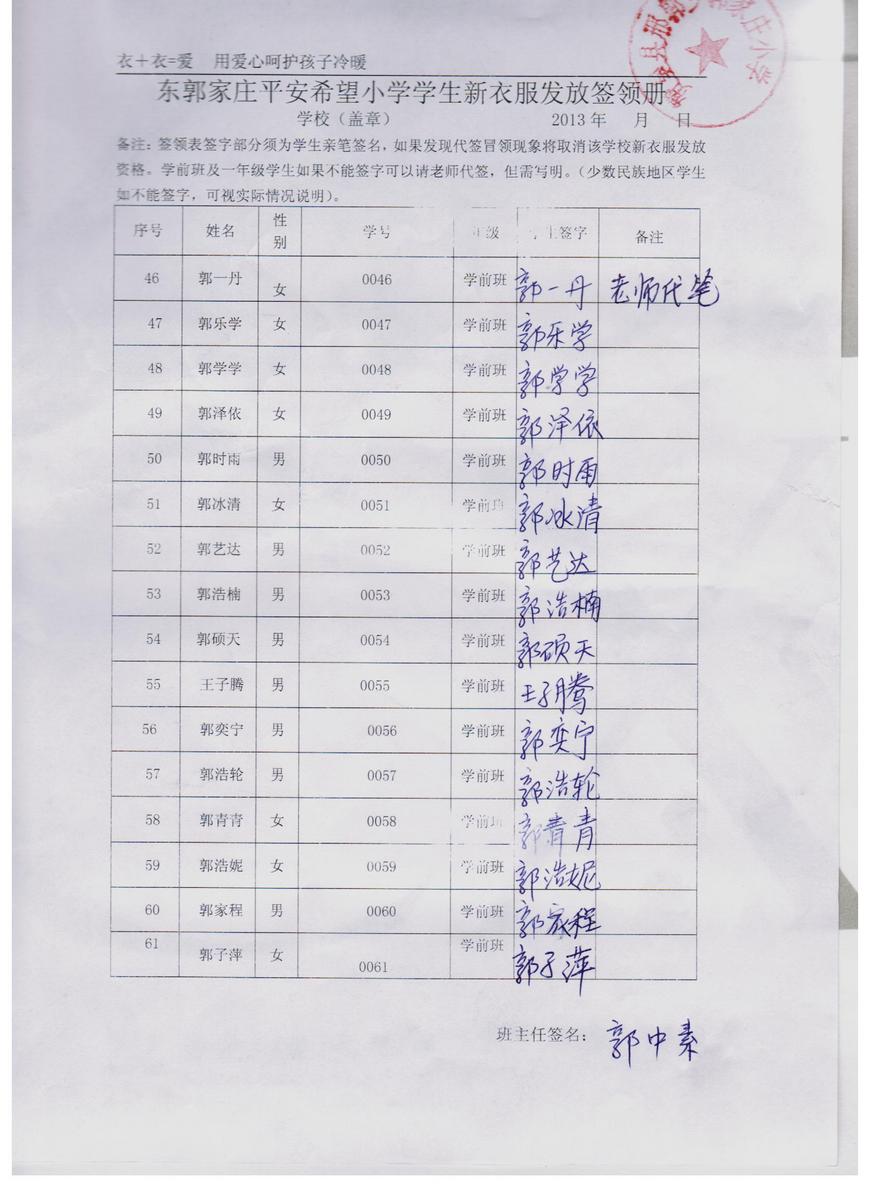 衣＋衣=爱 用爱心呵护孩子冷暖
东郭家庄平安希望小学学生新衣服发放签领册
学校（盖章） 2013 年 月 日
备注：签领表签字部分须为学生亲笔签名，如果发现代签冒领现象将取消该学校新衣服发放
资格。学前班及一年级学生如果不能签字可以请老师代签，但需写明。（少数民族地区学生
如不能签字，可视实际情况说明）。
序号 姓名 性别 学号 级 签字 备注
46 郭一丹 女 0046 学前班 郭一丹 老师代笔
47 郭乐学 女 0047 学前班 郭乐学
48 郭学学 女 0048 学前班 郭学学
49 郭泽依 女 0049 学前班 郭泽依
50 郭时雨 男 0050 学前班 郭时雨
51 郭冰清 女 0051 学前班 郭冰清
52 郭艺达 男 0052 学前班 郭艺达
53 郭浩楠 男 0053 学前班 郭浩楠
54 郭硕天 男 0054 学前班 郭硕天
55 王子腾 男 0055 学前班 王子腾
56 郭奕宁 男 0056 学前班 郭奕宁
57 郭浩轮 男 0057 学前班 郭浩轮
58 郭青青 女 0058 学前班 郭青青
59 郭浩妮 女 0059 学前班 郭浩妮
60 郭家程 男 0060 学前班 郭家程
61 郭子萍 女 0061 学前班 郭子萍
班主任签名： 郭中素